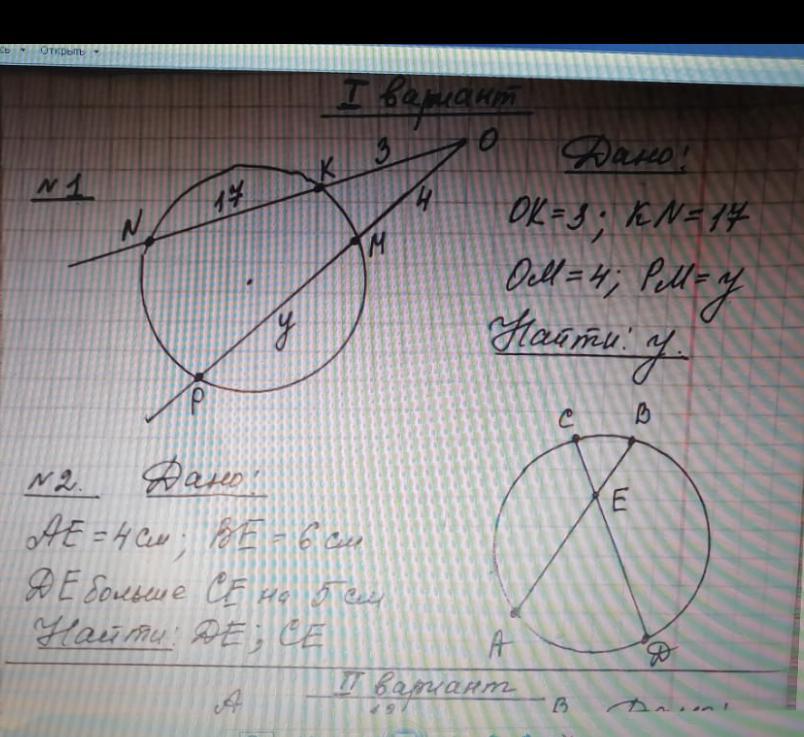 Открыть
I вариант
№1
N
17
K
3
O
4
M
y
P
Дано:
OK=3; KN=17
OM=4; PM=y
Найти: y.
№2. Дано:
AE=4см; BE=6см
DE больше CE на 5см
Найти: DE; CE
C
B
E
A
D
II вариант
A
B
Дано: